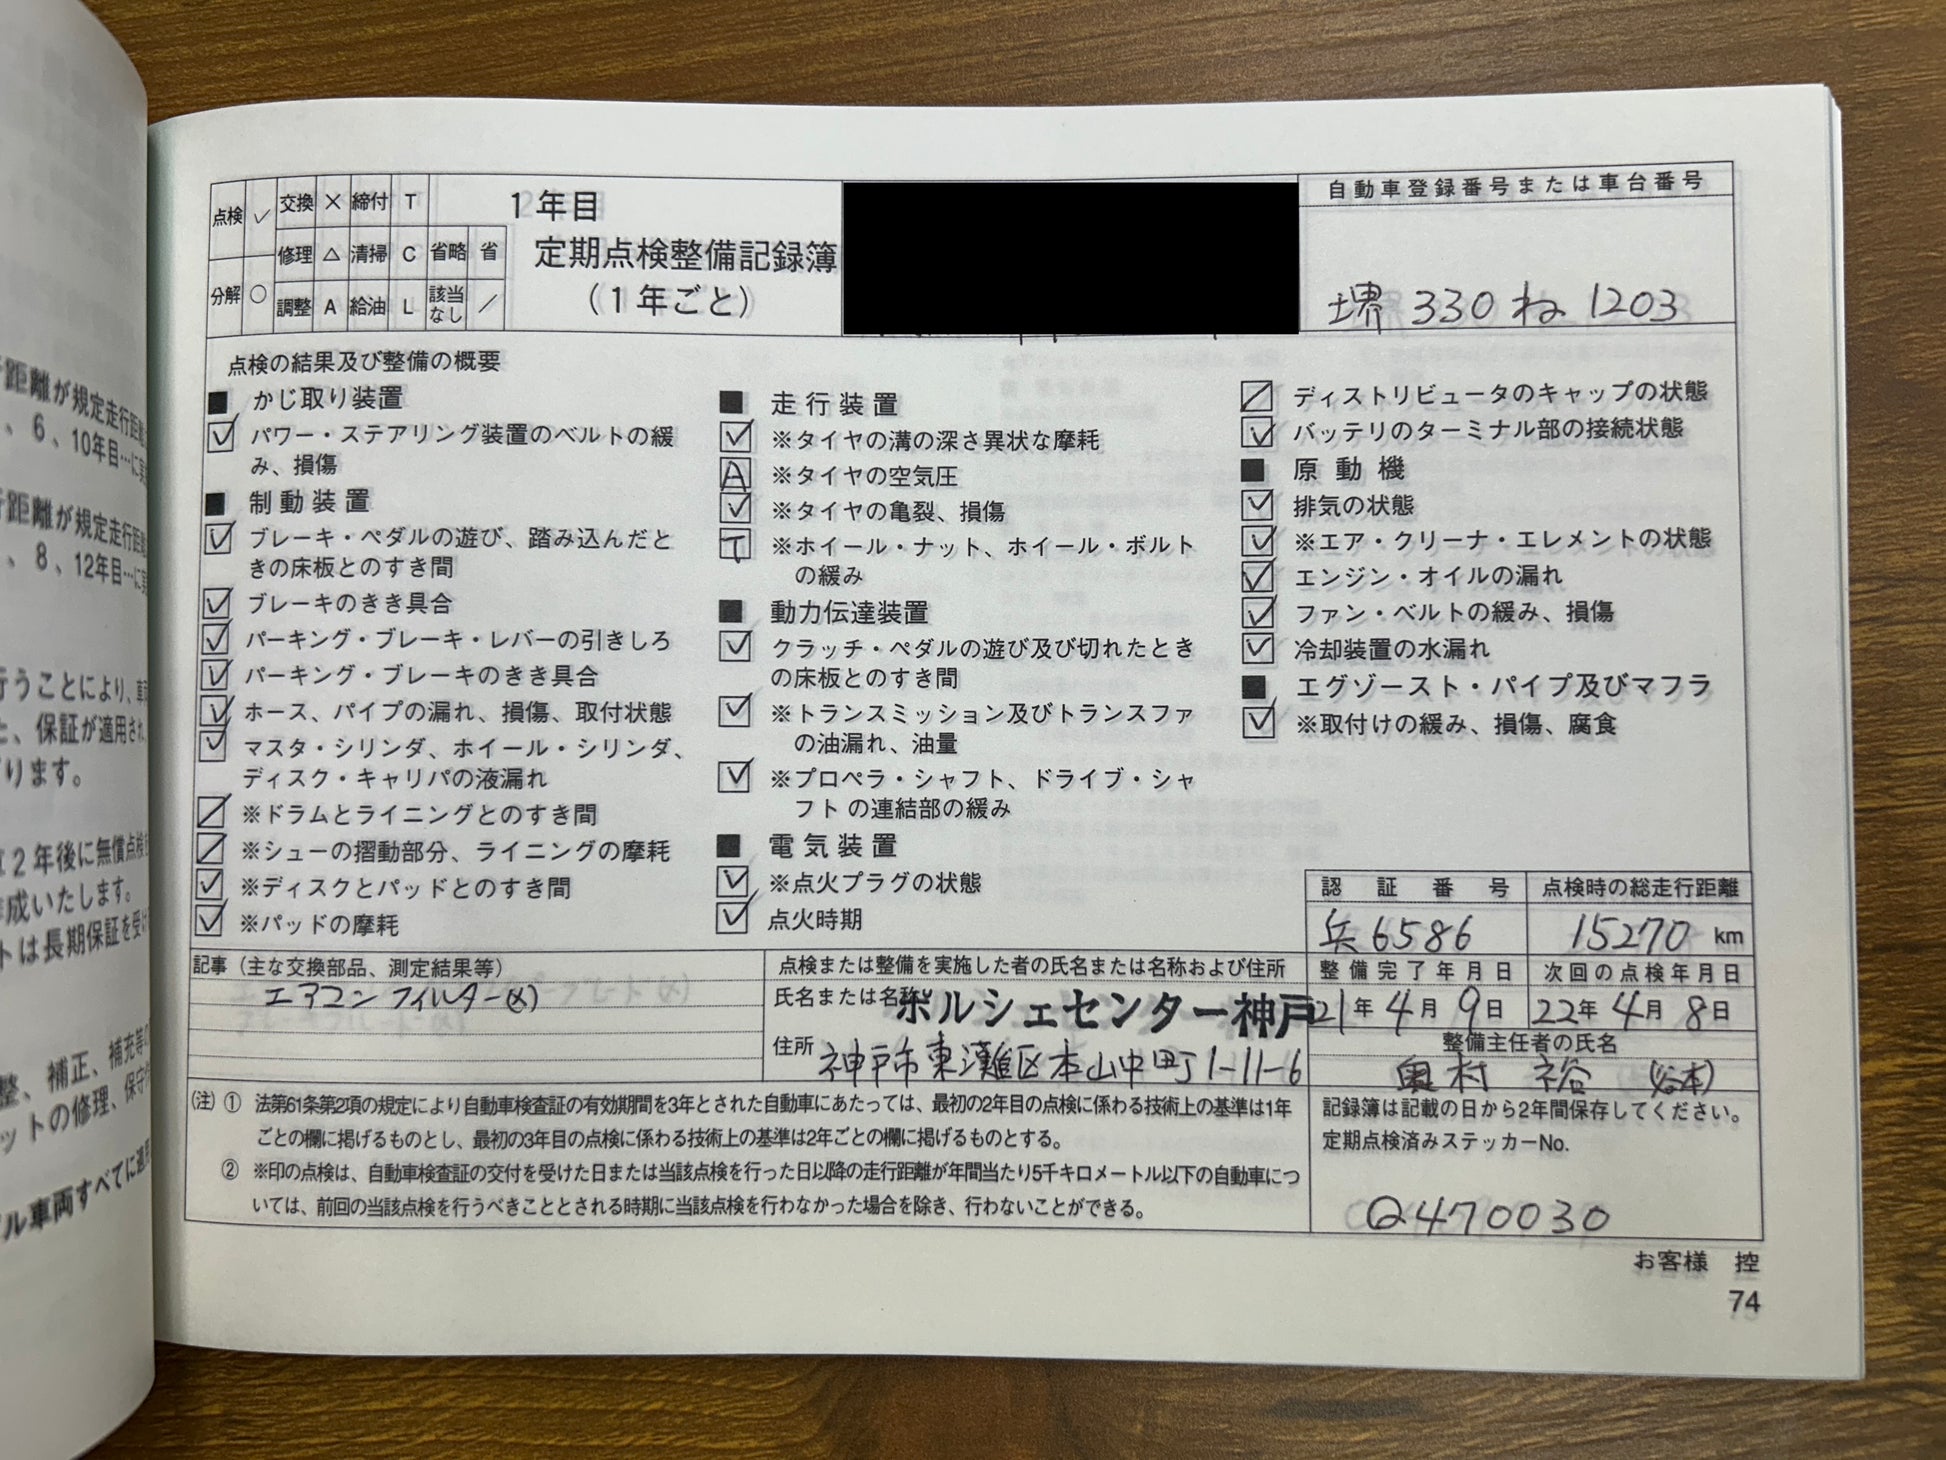 距離が規定走行距離
、6、10年目…に実
距離が規定走行距離
、8、12年目…に実
行うことにより、車両
と、保証が適用され、
ります。
2年後に無償点検
作成いたします。
トは長期保証を受け
整、補正、補充等の
ットの修理、保守
ル車両すべてに適用
点検 ✓ 交換 × 締付 T
修理 △ 清掃 C 省略 省
分解 ○ 調整 A 給油 L 該当なし ／
1年目
定期点検整備記録簿
（1年ごと）
自動車登録番号または車台番号
堺 330 ね 1203
点検の結果及び整備の概要
■ かじ取り装置
✓ パワー・ステアリング装置のベルトの緩
み、損傷
■ 制動装置
✓ ブレーキ・ペダルの遊び、踏み込んだと
きの床板とのすき間
✓ ブレーキのきき具合
✓ パーキング・ブレーキ・レバーの引きしろ
✓ パーキング・ブレーキのきき具合
✓ ホース、パイプの漏れ、損傷、取付状態
✓ マスタ・シリンダ、ホイール・シリンダ、
ディスク・キャリパの液漏れ
／ ※ドラムとライニングとのすき間
／ ※シューの摺動部分、ライニングの摩耗
✓ ※ディスクとパッドとのすき間
✓ ※パッドの摩耗
■ 走行装置
✓ ※タイヤの溝の深さ異状な摩耗
A ※タイヤの空気圧
✓ ※タイヤの亀裂、損傷
T ※ホイール・ナット、ホイール・ボルト
の緩み
■ 動力伝達装置
✓ クラッチ・ペダルの遊び及び切れたとき
の床板とのすき間
✓ ※トランスミッション及びトランスファ
の油漏れ、油量
✓ ※プロペラ・シャフト、ドライブ・シャ
フト の連結部の緩み
■ 電気装置
✓ ※点火プラグの状態
✓ 点火時期
／ ディストリビュータのキャップの状態
✓ バッテリのターミナル部の接続状態
■ 原動機
✓ 排気の状態
✓ ※エア・クリーナ・エレメントの状態
✓ エンジン・オイルの漏れ
✓ ファン・ベルトの緩み、損傷
✓ 冷却装置の水漏れ
■ エグゾースト・パイプ及びマフラ
✓ ※取付けの緩み、損傷、腐食
認証番号 点検時の総走行距離
兵6586 15270 km
記事（主な交換部品、測定結果等）
エアコンフィルター(×)
点検または整備を実施した者の氏名または名称および住所
氏名または名称 ポルシェセンター神戸
住所 神戸市東灘区本山中町1-11-6
整備完了年月日 次回の点検年月日
21年4月9日 22年4月8日
整備主任者の氏名
奥村 裕 (谷本)
（注）① 法第61条第2項の規定により自動車検査証の有効期間を3年とされた自動車にあたっては、最初の2年目の点検に係わる技術上の基準は1年
ごとの欄に掲げるものとし、最初の3年目の点検に係わる技術上の基準は2年ごとの欄に掲げるものとする。
② ※印の点検は、自動車検査証の交付を受けた日または当該点検を行った日以降の走行距離が年間当たり5千キロメートル以下の自動車につ
いては、前回の当該点検を行うべきこととされる時期に当該点検を行わなかった場合を除き、行わないことができる。
記録簿は記載の日から2年間保存してください。
定期点検済みステッカーNo.
Q470030
お客様 控
74